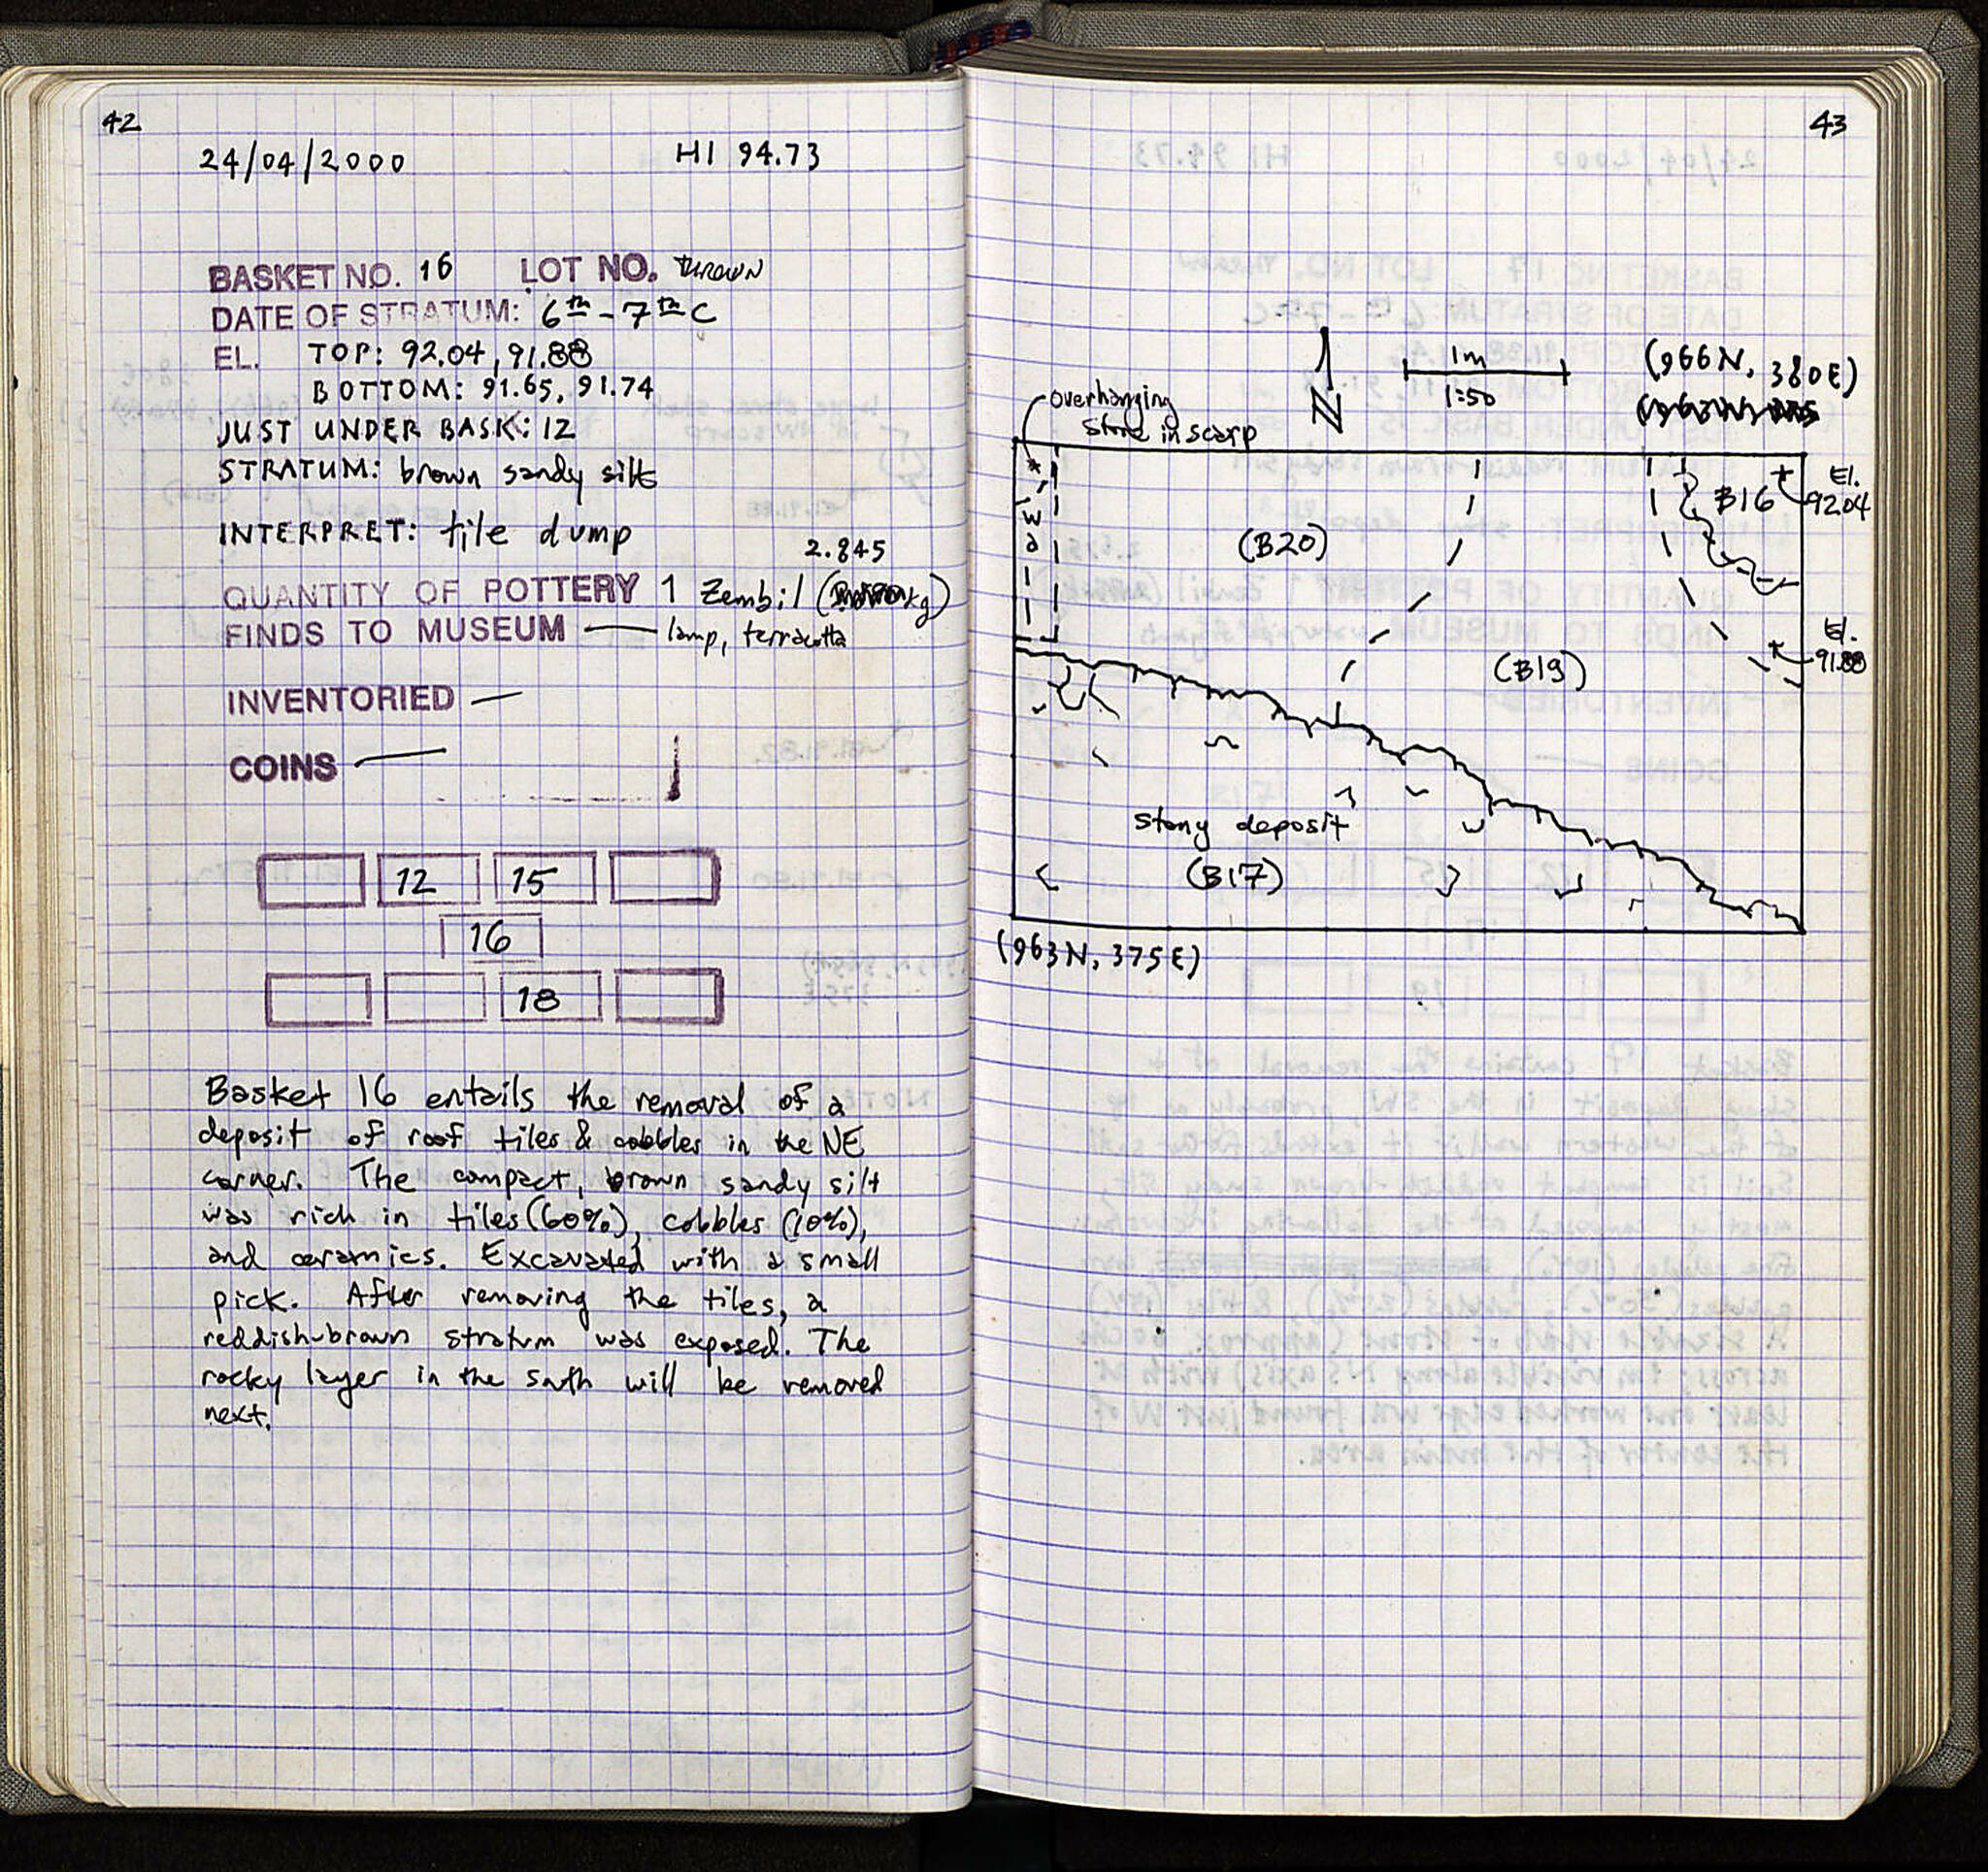 42
24/04/2000 HI 94.73
BASKET NO. 16 LOT NO. THROWN
DATE OF STRATUM: 6th - 7th C
EL. TOP: 92.04, 91.88
BOTTOM: 91.65, 91.74
JUST UNDER BASK: 12
STRATUM: brown sandy silt
INTERPRET: tile dump
2.845
QUANTITY OF POTTERY 1 Zembil (kg)
FINDS TO MUSEUM — lamp, terracotta
INVENTORIED —
COINS —
12 15
16
18
Basket 16 entails the removal of a
deposit of roof tiles & cobbles in the NE
corner. The compact, brown sandy silt
was rich in tiles (60%), cobbles (10%),
and ceramics. Excavated with a small
pick. After removing the tiles, a
reddish-brown stratum was exposed. The
rocky layer in the south will be removed
next.
43
1m
1:50
N
(966N, 380E)
overhanging
stone in scarp
B16
El.
92.04
(B20)
El.
91.88
(B19)
stony deposit
(B17)
(963N, 375E)